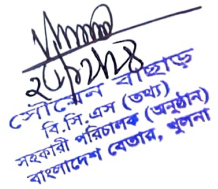 ২৮/২/২৪
সৌমেন বাছাড়
বি.সি.এস (তথ্য)
সহকারী পরিচালক (অনুষ্ঠান)
বাংলাদেশ বেতার, খুলনা